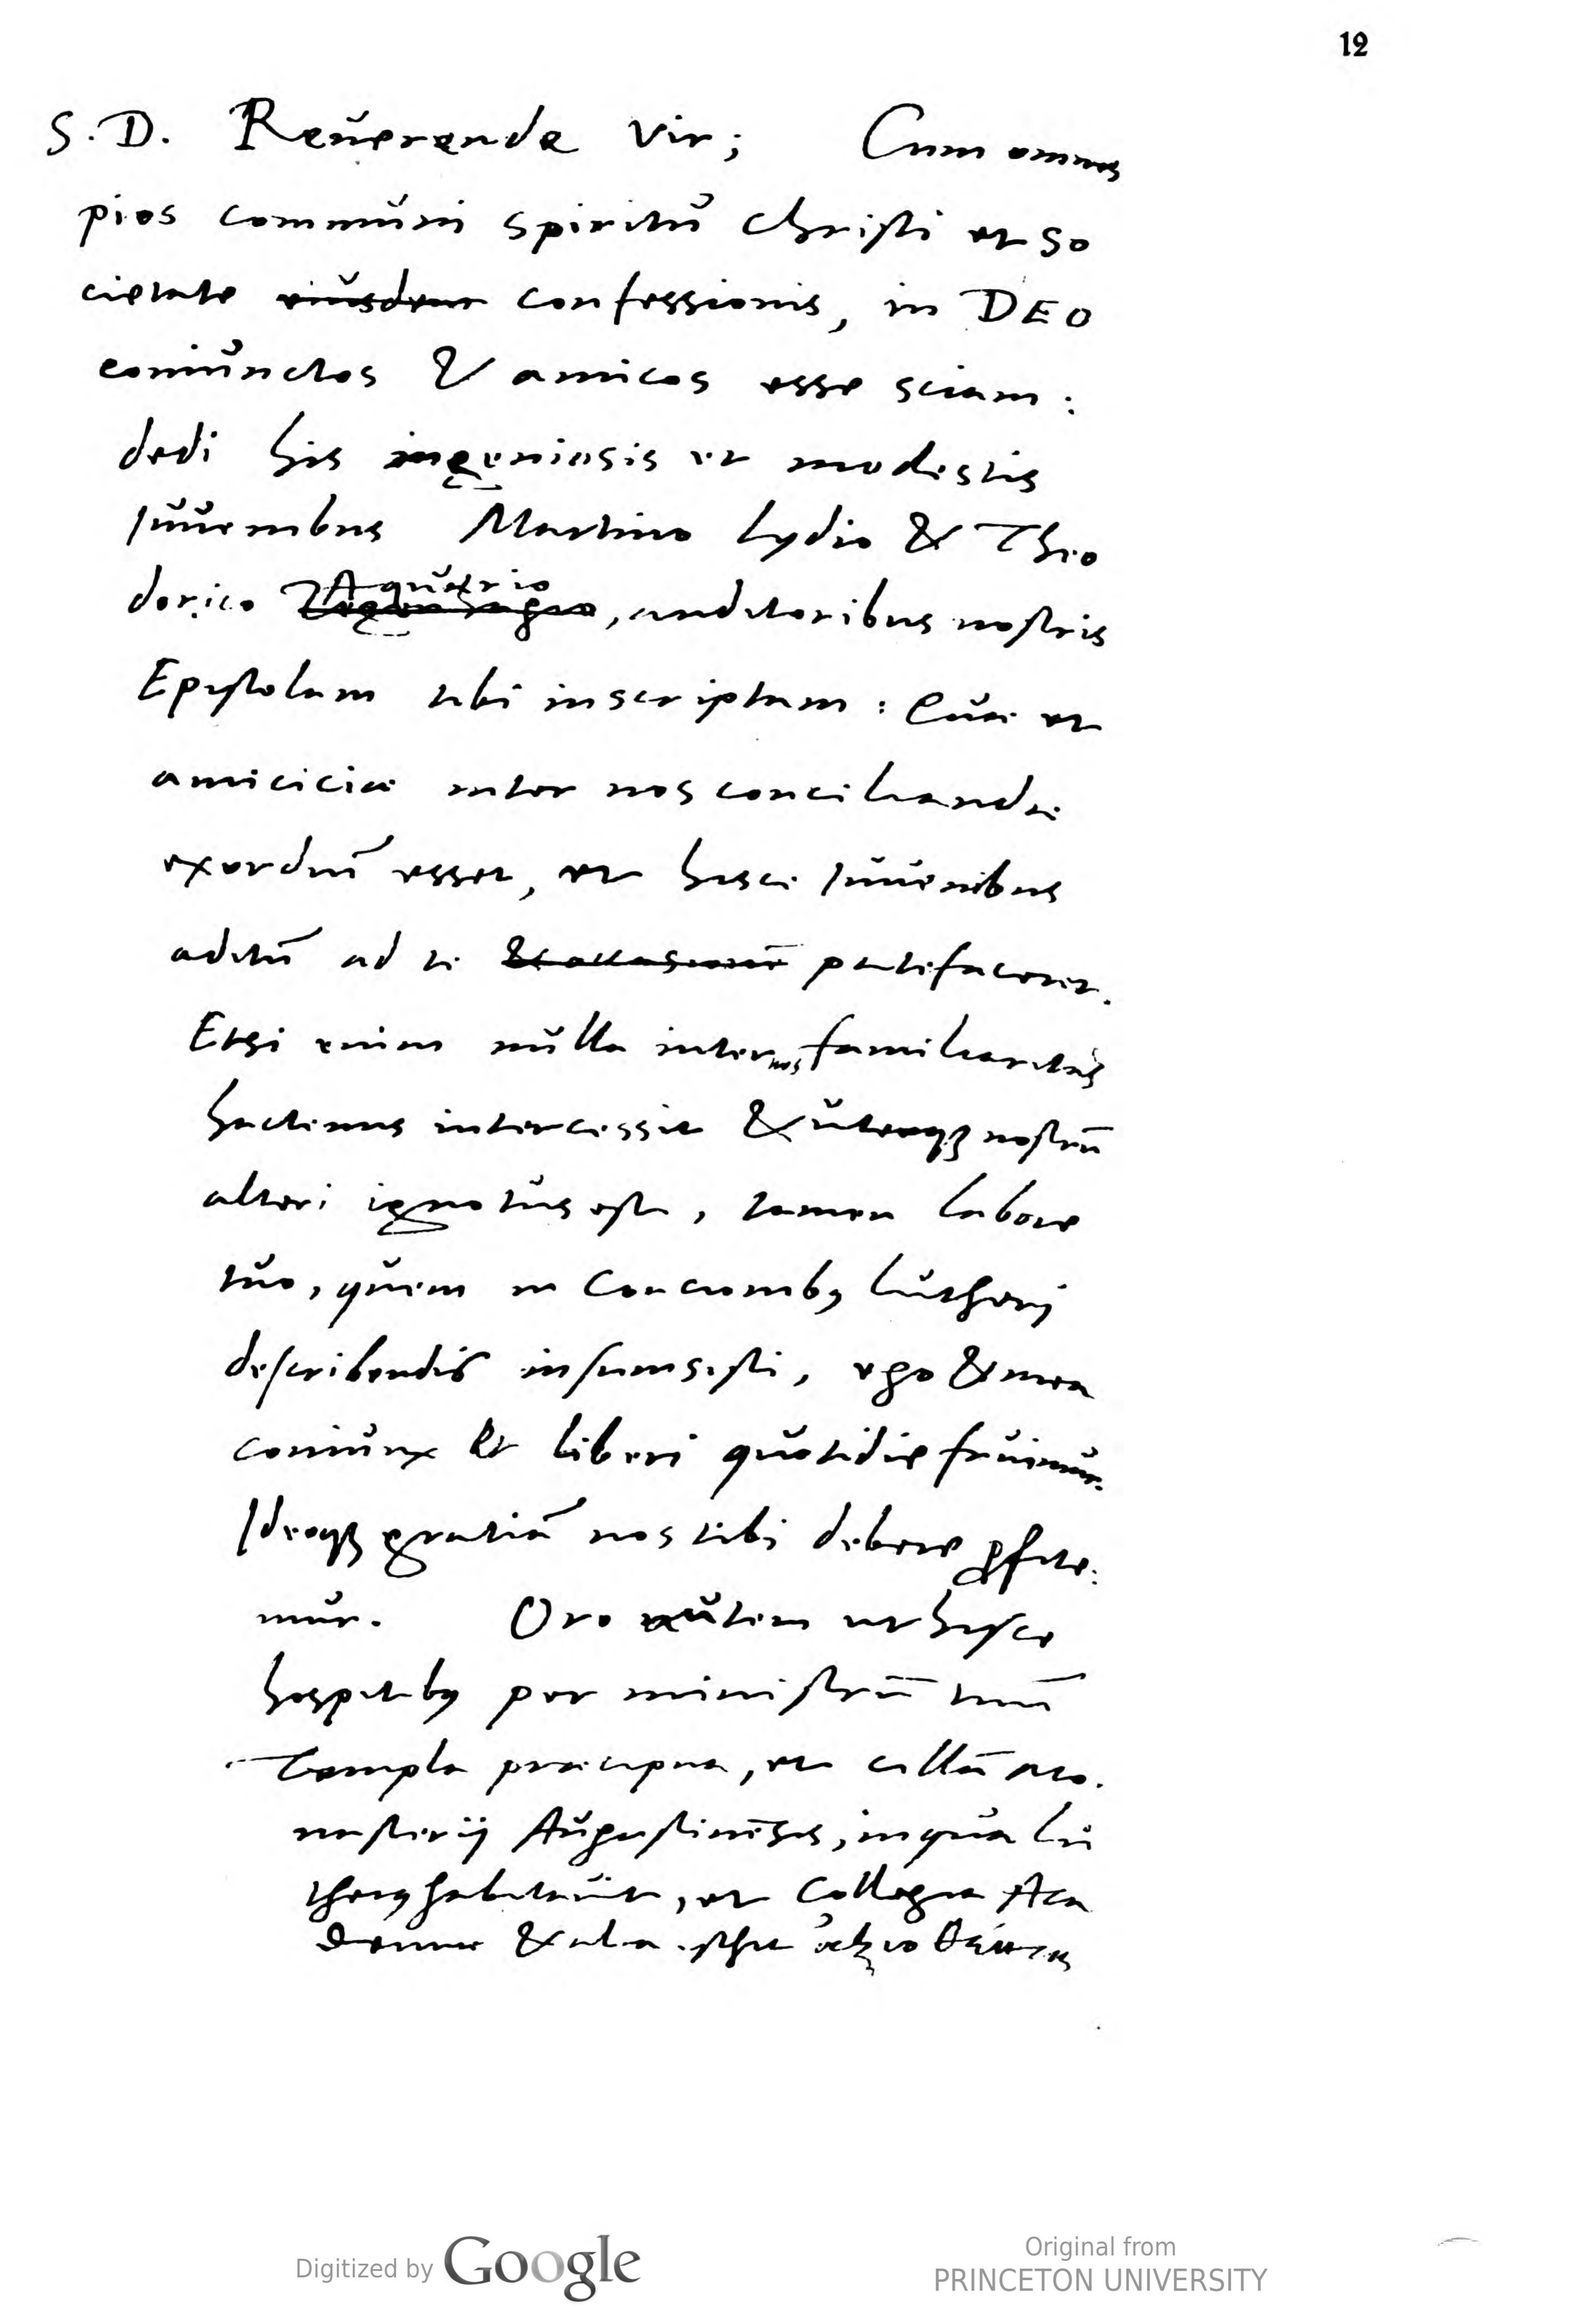 12
S. D. Reuerende Vir; Cum omnes
pios communi spiritu Christi et so
cietate eiusdem confessionis, in DEO
coniunctos & amicos esse sciam:
dedi his ingeniosis et modestis
Iuuenibus Martino Lydio & Theo
dorico Aquario, auditoribus nostris
Epistolam tibi inscriptam: Quæ et
amiciciæ inter nos conciliandæ
exordiū esset, et hisce Iuuenibus
aditū ad te & occasionē patefaceret.
Etsi enim nulla inter nos familiaritas
hactenus intercessit & uterqȝ nostrū
alteri ignotus est, tamen labore
tuo, quem in Concionibꝰ Lutheri
describendis insumsisti, ego & mea
coniunx et liberi quotidie fruimur.
Ideoqȝ gratiā nos tibi debere ꝓfite:
mur. Oro autem ut hisce
hospitibꝰ per ministrū tuū
Templa præcipua, et cellā Mo.
nasterij Augustinēsis, in qua Lu
therꝰ habitauit, et Collegia Aca
demiæ & alia
Digitized by Google
Original from
PRINCETON UNIVERSITY